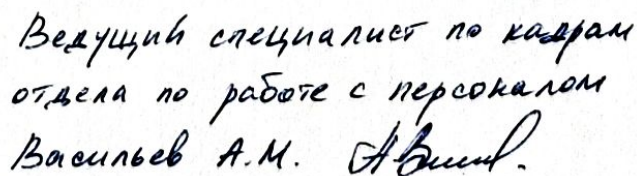 Ведущий специалист по кадрам
отдела по работе с персоналом
Васильев А.М.